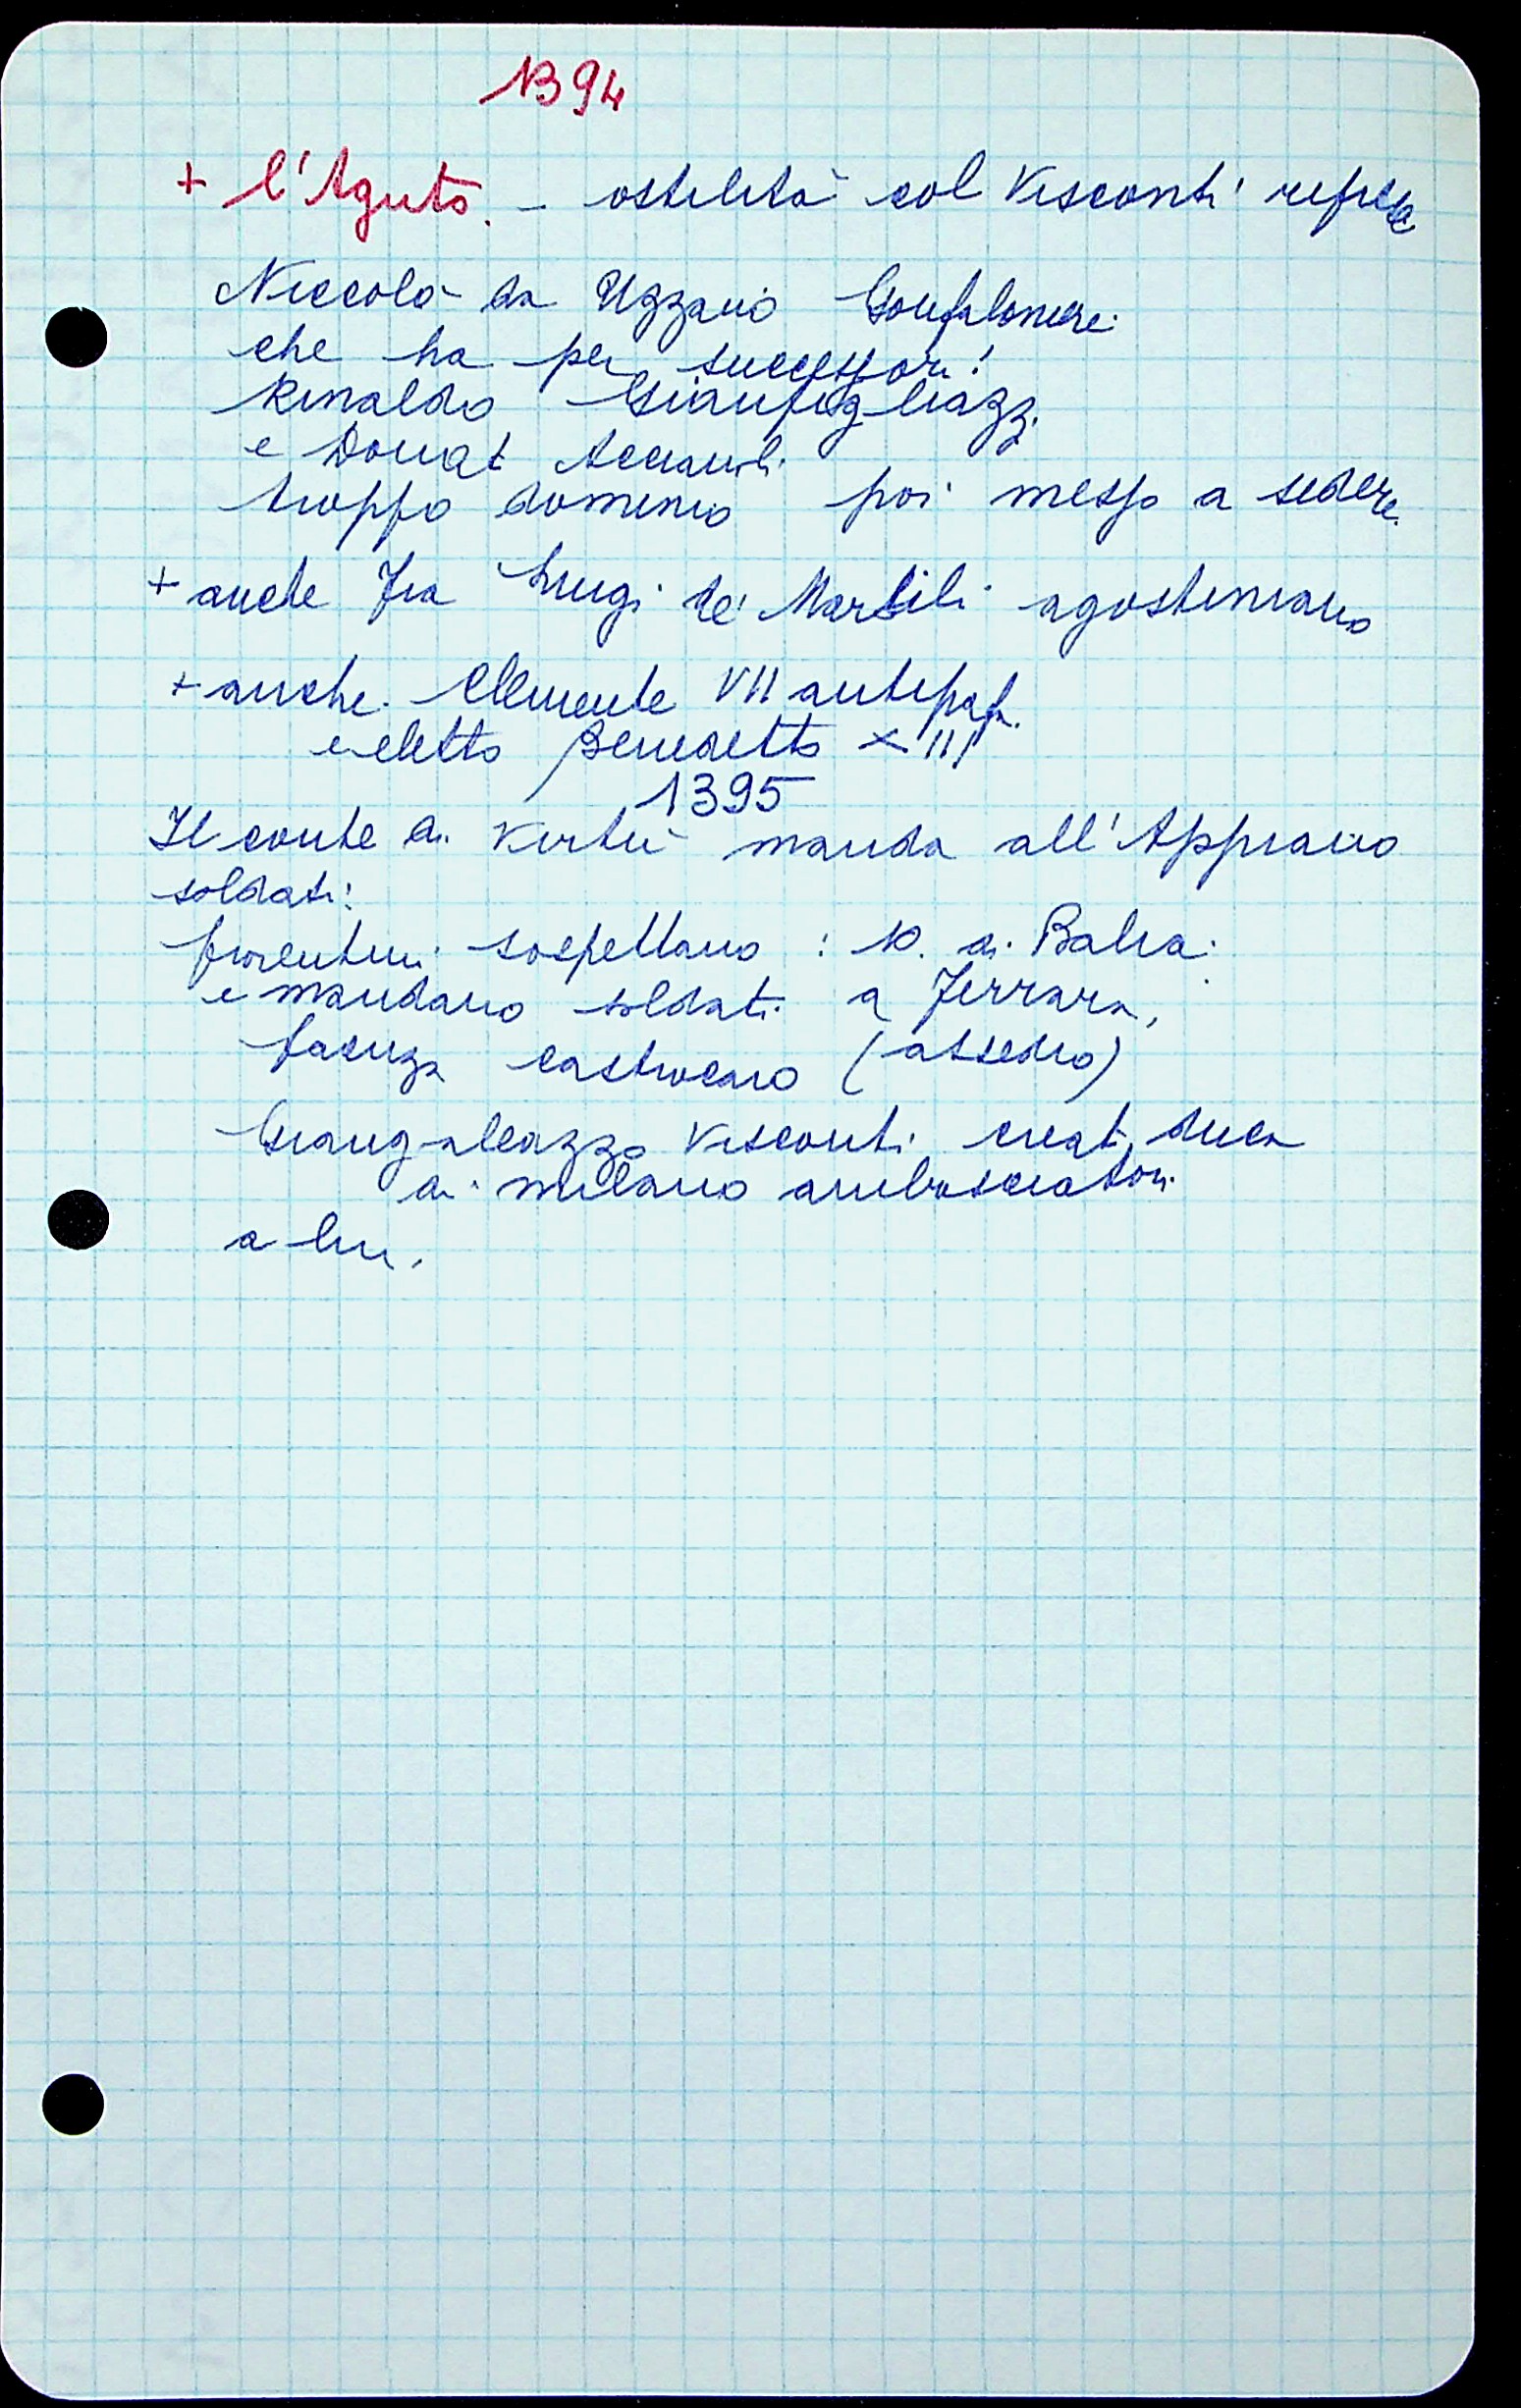 1394
+ l'Aguto. - ostilità col Visconti riprese
Niccolò da Uzzano Gonfaloniere
che ha per successori:
Rinaldo Gianfigliazzi
e Donat Acciaiuoli
troppo dominio poi messo a sedere.
+ anche Fra Luigi de' Marsili agostiniano
+ anche Clemente VII antipapa.
e eletto Benedetto XIII
1395
Il conte di Virtù manda all'Appiano
soldati:
fiorentini sospettano : 10. di Balia
e mandano soldati a Ferrara,
faenza castrocaro (assedio)
Giangaleazzo Visconti creat. duca
di milano ambasciatori
a lui.